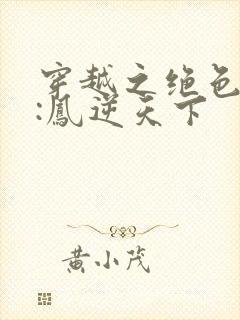 穿越之绝色
:凰逆天下
黄小茂